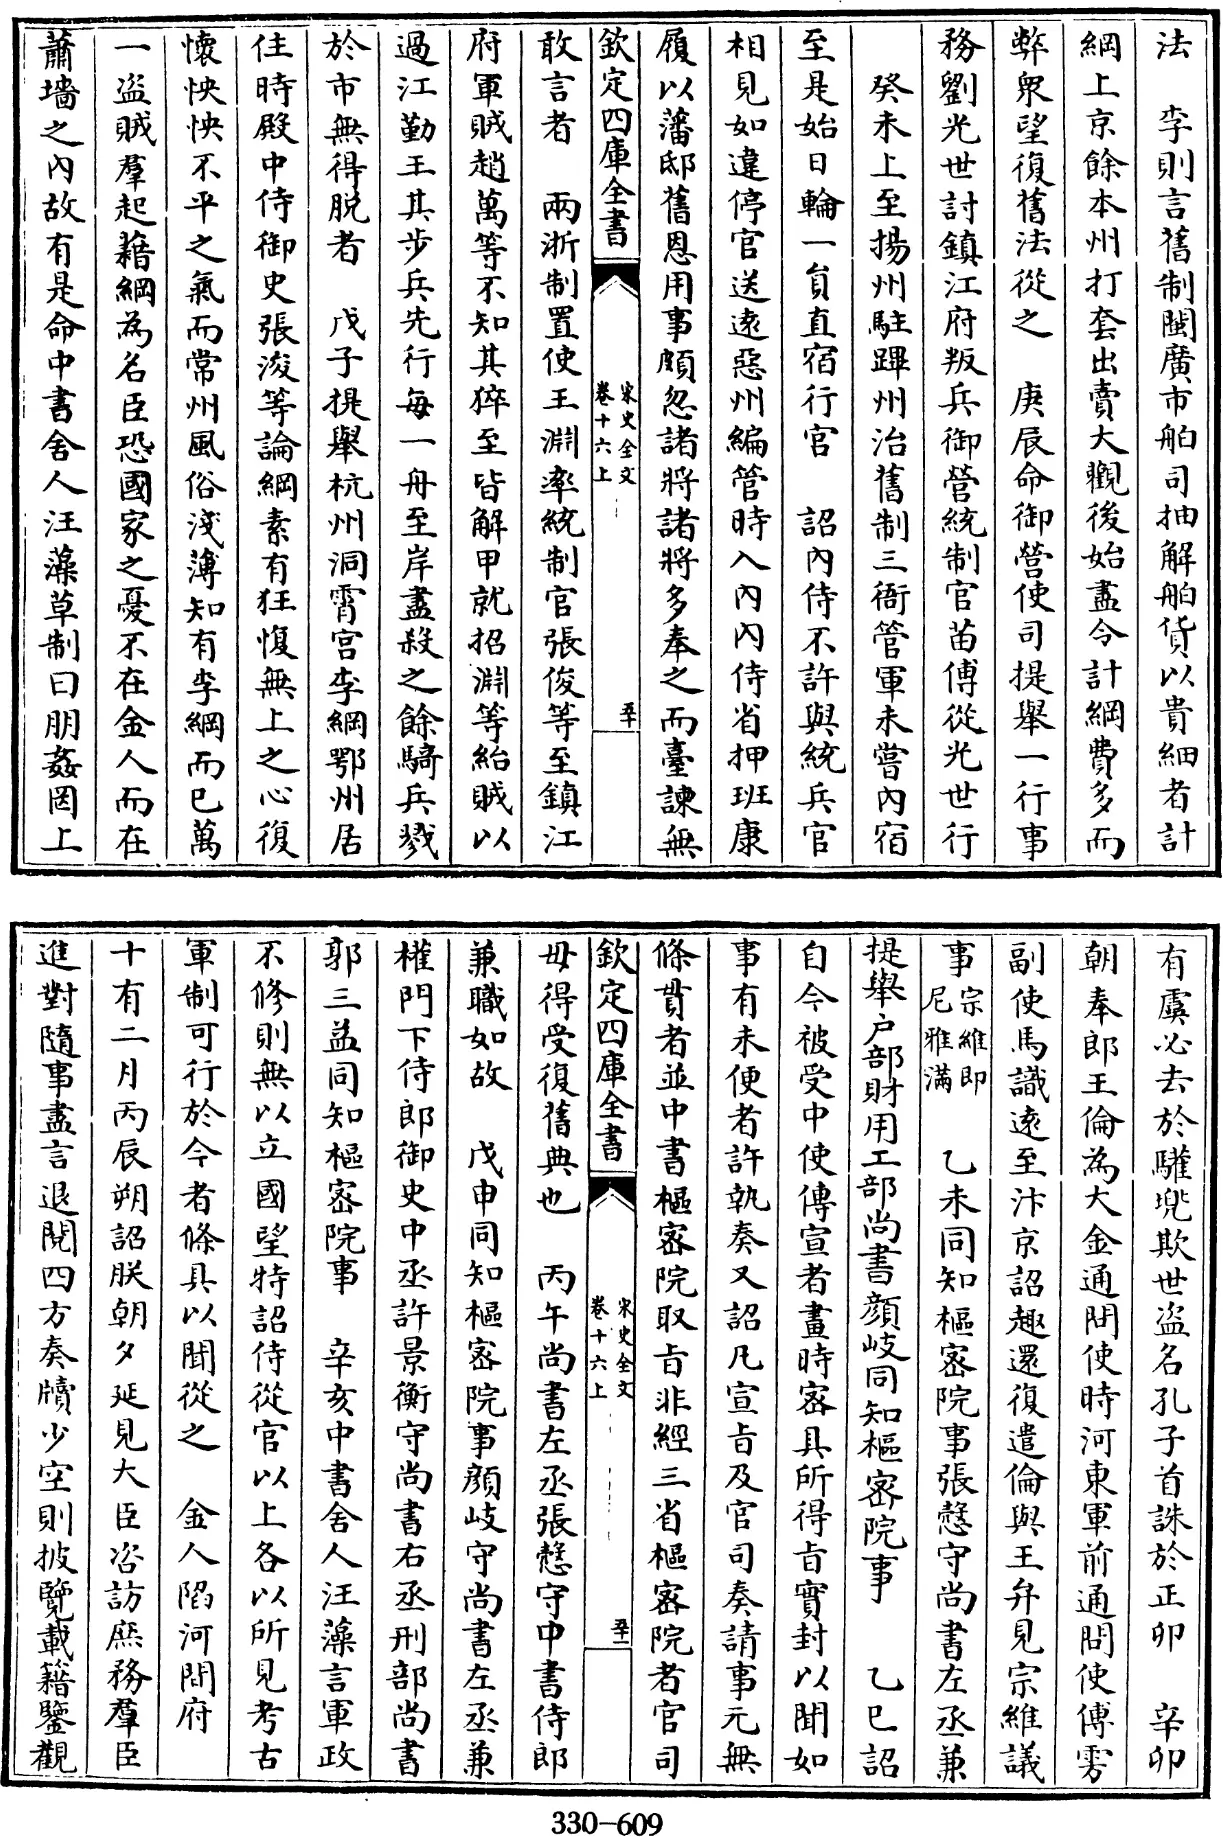 法　李則言舊制閩廣市舶司抽解舶貨以貴細者計
綱上京餘本州打套出賣大觀後始盡令計綱費多而
弊衆望復舊法從之　庚辰命御營使司提舉一行事
務劉光世討鎮江府叛兵御營統制官苗傅從光世行
　癸未上至揚州駐蹕州治舊制三衙管軍未嘗內宿
至是始日輪一員直宿行宫　詔內侍不許與統兵官
相見如違停官送遠惡州編管時入內內侍省押班康
履以藩邸舊恩用事頗忽諸將諸將多奉之而臺諫無
欽定四庫全書
宋史全文
卷十六上
五十
敢言者　兩浙制置使王淵率統制官張俊等至鎮江
府軍賊趙萬等不知其猝至皆解甲就招淵等紿賊以
過江勤王其步兵先行每一舟至岸盡殺之餘騎兵戮
於市無得脫者　戊子提舉杭州洞霄宫李綱鄂州居
住時殿中侍御史張浚等論綱素有狂愎無上之心復
懷怏怏不平之氣而常州風俗淺薄知有李綱而已萬
一盜賊羣起藉綱為名臣恐國家之憂不在金人而在
蕭墻之內故有是命中書舍人汪藻草制曰朋姦罔上
有虞必去於驩兜欺世盜名孔子首誅於正卯　辛卯
朝奉郎王倫為大金通問使時河東軍前通問使傅雱
副使馬識遠至汴京詔趣還復遣倫與王弁見宗維議
事宗維即尼雅滿　乙未同知樞密院事張慤守尚書左丞兼
提舉户部財用工部尚書顔岐同知樞密院事　乙巳詔
自今被受中使傳宣者畫時密具所得旨實封以聞如
事有未便者許執奏又詔凡宣旨及官司奏請事元無
條貫者並中書樞密院取旨非經三省樞密院者官司
欽定四庫全書
宋史全文
卷十六上
五十一
毋得受復舊典也　丙午尚書左丞張慤守中書侍郎
兼職如故　戊申同知樞密院事顔岐守尚書左丞兼
權門下侍郎御史中丞許景衡守尚書右丞刑部尚書
郭三益同知樞密院事　辛亥中書舍人汪藻言軍政
不修則無以立國望特詔侍從官以上各以所見考古
軍制可行於今者條具以聞從之　金人陷河間府
十有二月丙辰朔詔朕朝夕延見大臣咨訪庶務羣臣
進對隨事盡言退閱四方奏牘少空則披覽載籍鑒觀
330-609